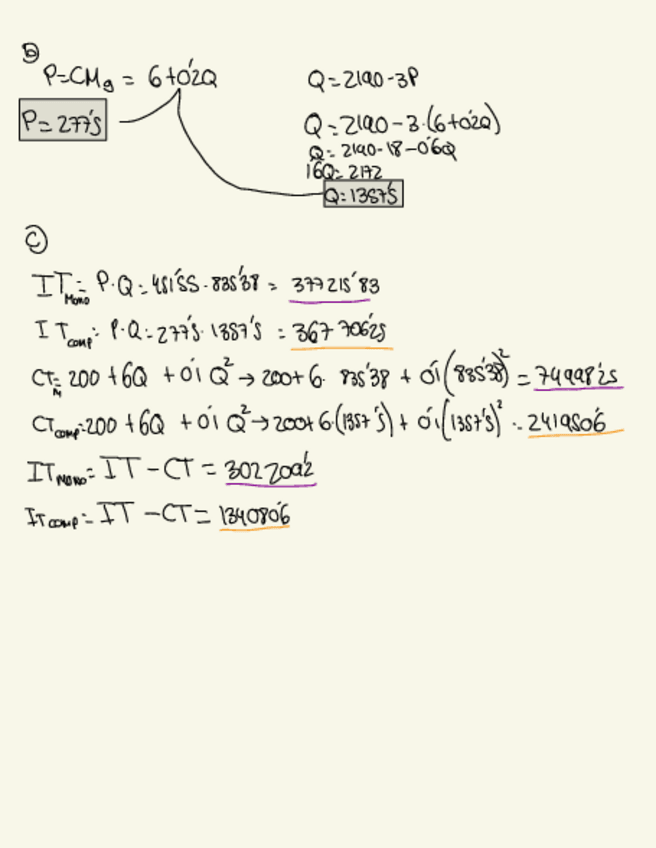 b)
P=CMg = 6+0'2Q
Q=2190-3P
P=277'5
Q=2190-3·(6+0'2Q)
Q=2190-18-0'6Q
1'6Q=2172
Q=1357'5
c)
IT Mono= P·Q=451'55·835'38= 377215'83
IT comp= P·Q=277'5·1357'5 =367 706'25
CT M= 200+6Q +0'1 Q² → 200+6· 835'38 + 0'1(835'38)² = 74998'25
CT comp=200 +6Q +0'1 Q² → 200+6·(1357'5)+ 0'1(1357'5)² = 241950'6
IT MONO= IT-CT = 302209'2
IT COMP= IT -CT= 134080'6